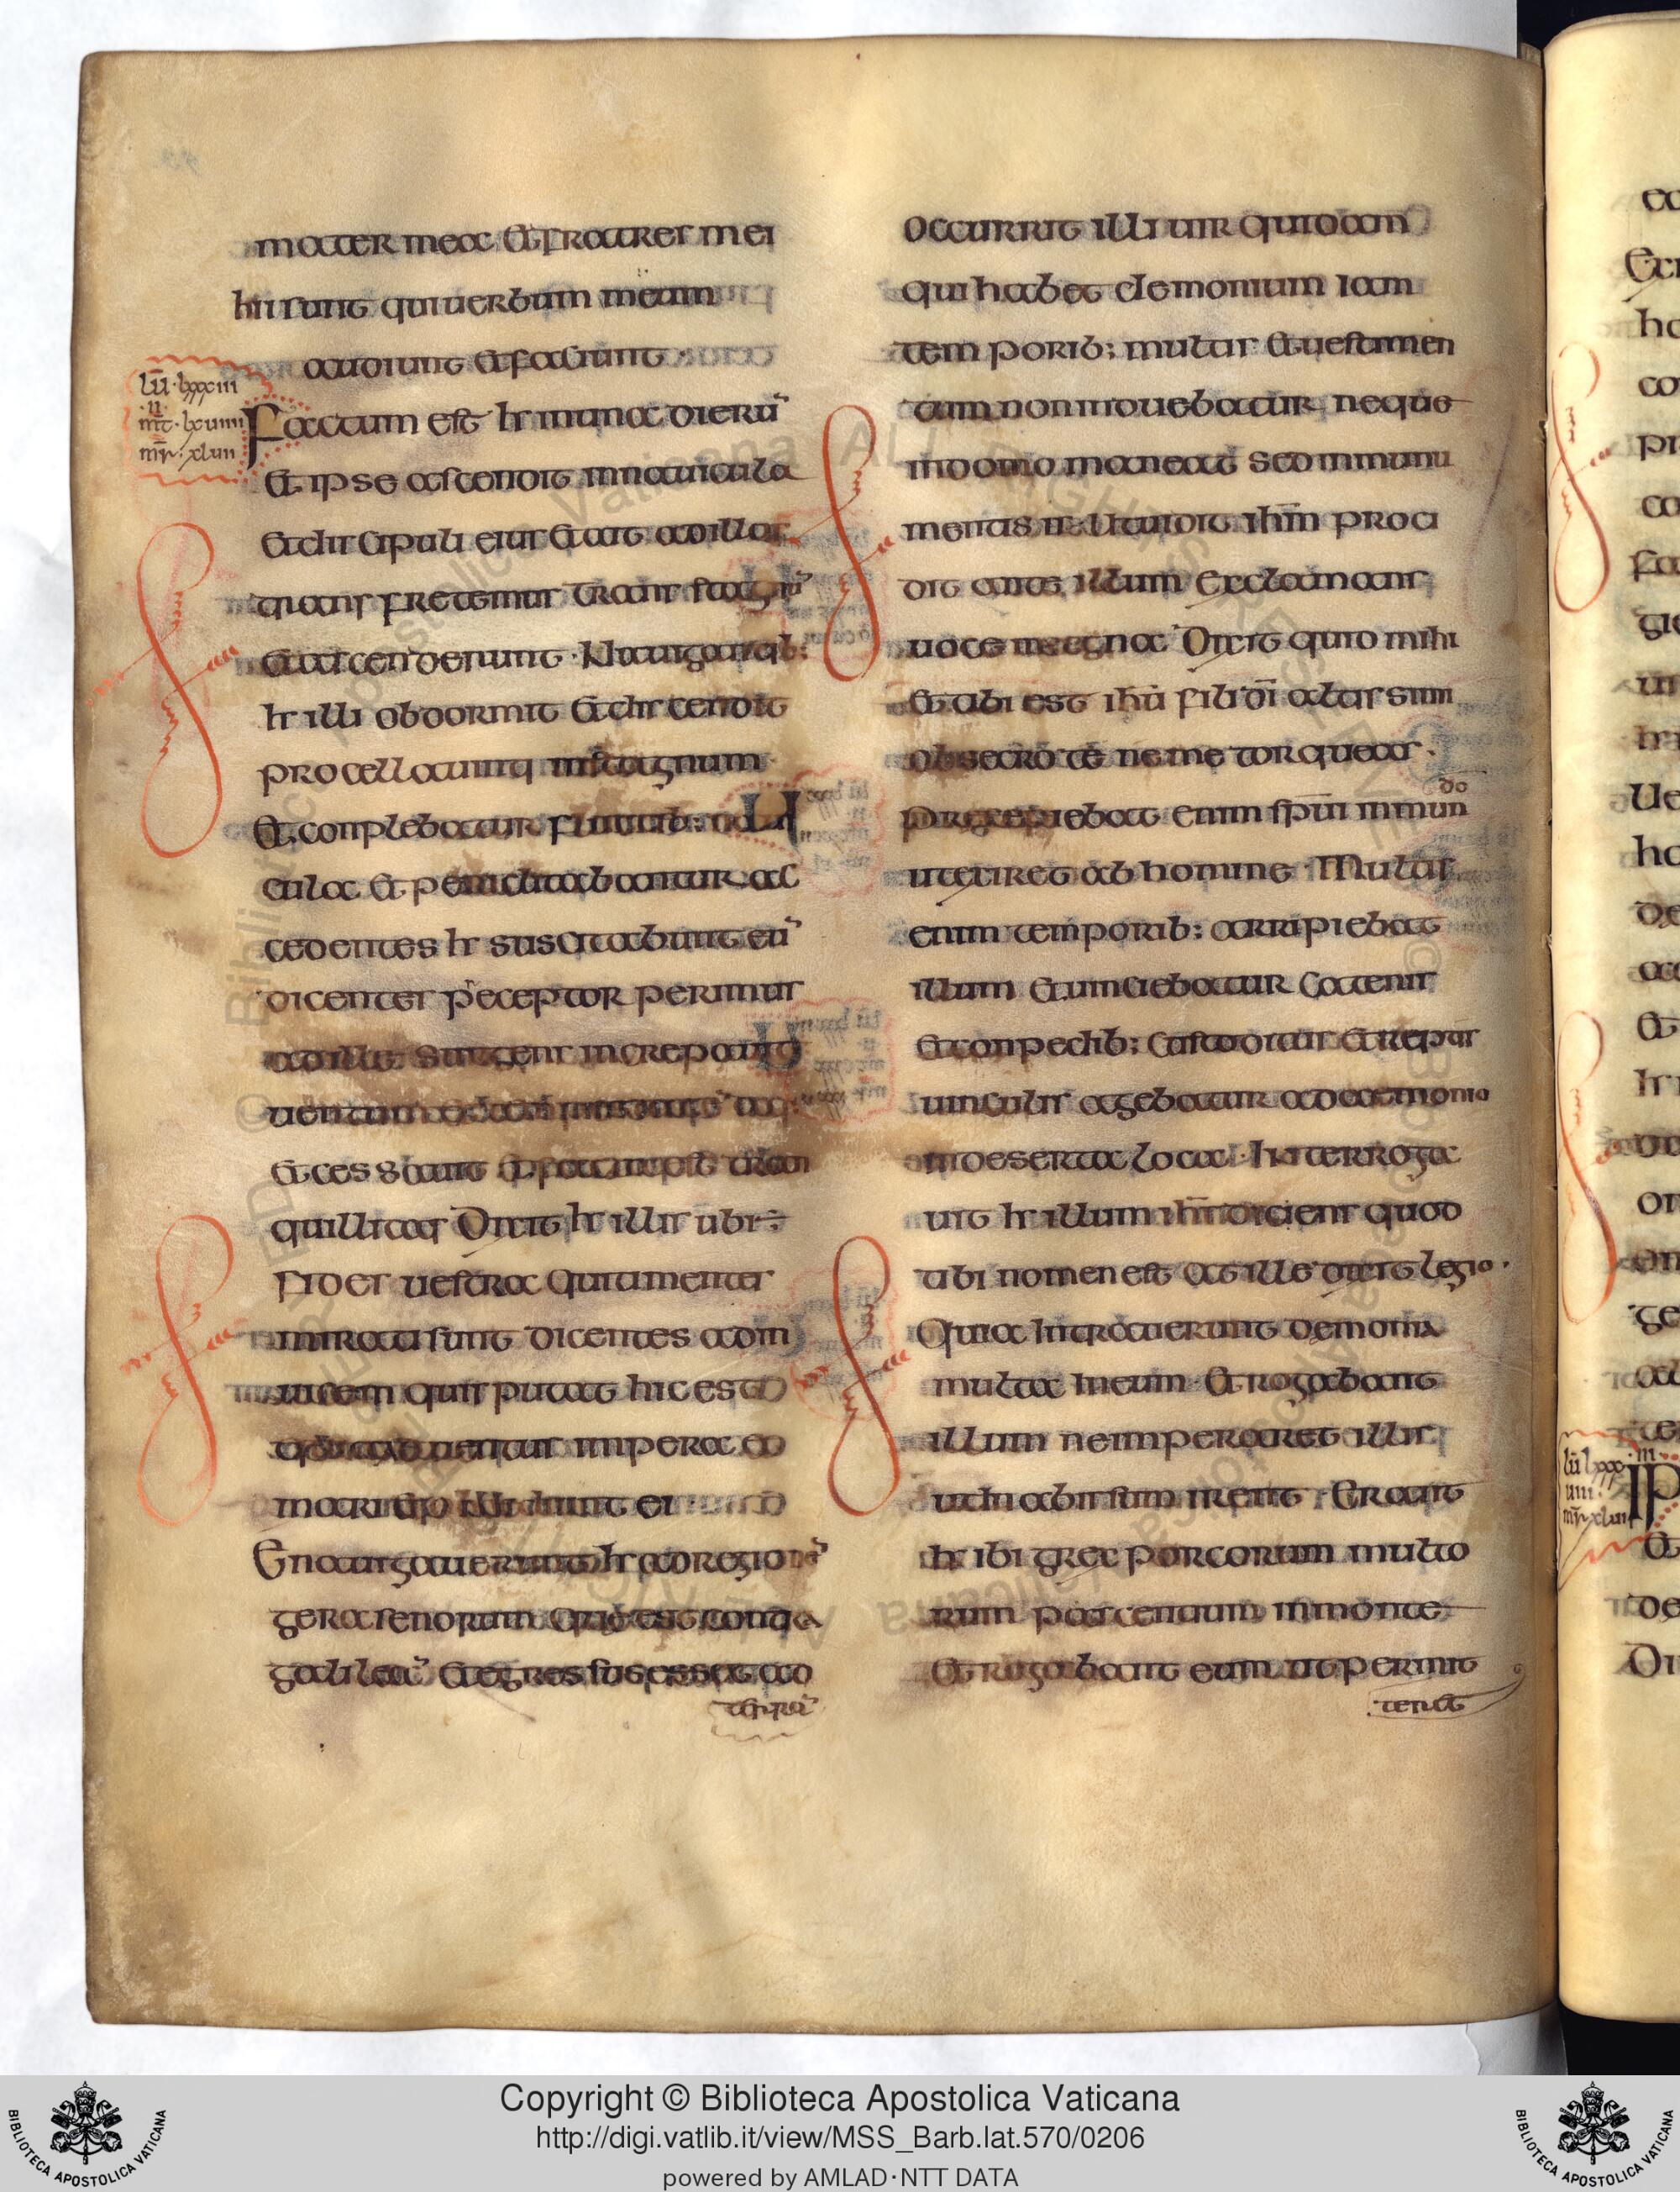 mater mea et fratres mei
hii sunt qui uerbum meum
audiunt et faciunt
lū · lxxxiii
·ii·
mt · lxuiiii
mr · xluii
Factum est hr in una dierū
et ipse ascendit in nauicula
et discipuli eius et ait ad illos
trans fretemus trans stagnū
et ascenderunt · Nauigantib:
hr illi obdormit et discendit
procella uinti in stagnum
et conplebatur fluctib: naui
cula et periclitabantur ac
cedentes hr suscitabunt eū
dicentes p'eceptor perimus
ad ille surgens increpauit
uentum
et cessauit et facta est tran
quillitas Dixit hr illis ubi ÷
fides uestra Qui timentes
mirati sunt dicentes ad in
uicem quis putat hic est
quia et uentis imperat et
mari et obediunt ei
Enauigauerunt hr ad regionē
gerasenorum que est contra
galileā et egressus esset ad
terrā
occurrit illi uir quidam
qui habet demonium iam
temporib: multis et uestimen
tum non induebatur neque
in domo maneat sed in munu
mentis ir Ut uidit ihm proci
dit ante illum exclamans
uoce magna Dixit quid mihi
et tibi est ihu fili dī altissimi
obsecro te ne me torqueas ·
precipiebat enim spm inmun
do
ut exiret ab homine · Multis
enim temporib: arripiebat
illum et uinciebatur catenis
et conpedib: custoditus et ruptis
uinculis agebatur a daemonio
in deserta loca · Interroga
uit hr illum ihs diciens quod
tibi nomen est at ille dixit legio ·
Quia intrauerunt demonia
multa in eum · et rogabant
illum ne imperaret illis
ut in abissum irent · Erant
hr ibi grex porcorum multo
rum pascentium in monte
et rogabant eum ut permit
teret
Copyright © Biblioteca Apostolica Vaticana
http://digi.vatlib.it/view/MSS_Barb.lat.570/0206
powered by AMLAD·NTT DATA
BIBLIOTECA APOSTOLICA VATICANA
BIBLIOTECA APOSTOLICA VATICANA